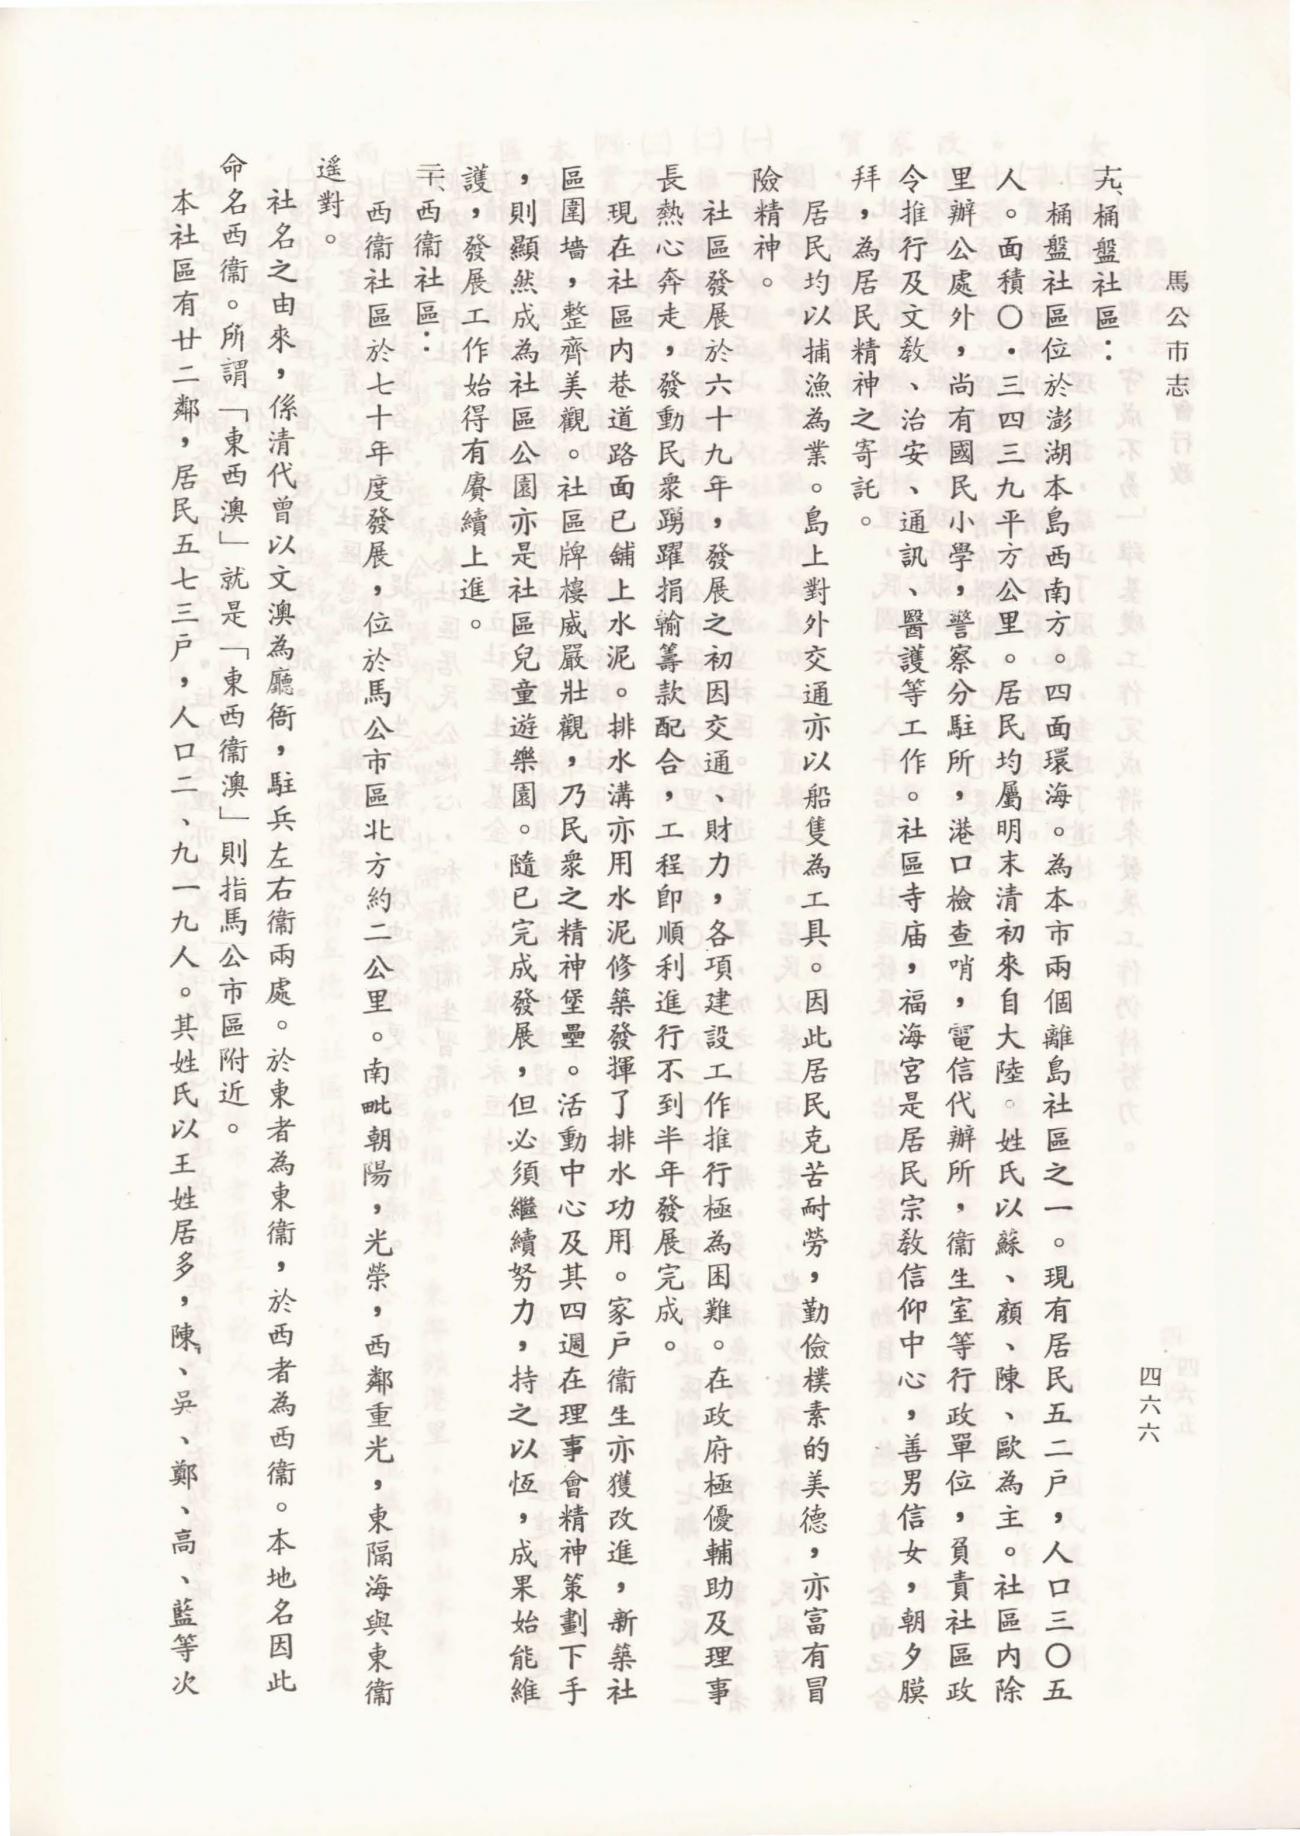 馬公市志
四六六
十九、桶盤社區：
桶盤社區位於澎湖本島西南方。四面環海。為本市兩個離島社區之一。現有居民五二戶，人口三〇五
人。面積〇．三四三九平方公里。居民均屬明末清初來自大陸。姓氏以蘇、顏、陳、歐為主。社區內除
里辦公處外，尚有國民小學，警察分駐所，港口檢查哨，電信代辦所，衞生室等行政單位，負責社區政
令推行及文教、治安、通訊、醫護等工作。社區寺庙，福海宮是居民宗教信仰中心，善男信女，朝夕膜
拜，為居民精神之寄託。
居民均以捕漁為業。島上對外交通亦以船隻為工具。因此居民克苦耐勞，勤儉樸素的美德，亦富有冒
險精神。
社區發展於六十九年，發展之初因交通、財力，各項建設工作推行極為困難。在政府極優輔助及理事
長熱心奔走，發動民衆踴躍捐輸籌款配合，工程即順利進行不到半年發展完成。
現在社區內巷道路面已舖上水泥。排水溝亦用水泥修築發揮了排水功用。家戶衞生亦獲改進，新築社
區圍墻，整齊美觀。社區牌樓威嚴壯觀，乃民衆之精神堡壘。活動中心及其四週在理事會精神策劃下手
，則顯然成為社區公園亦是社區兒童遊樂園。隨已完成發展，但必須繼續努力，持之以恆，成果始能維
護，發展工作始得有賡續上進。
二十、西衞社區：
西衞社區於七十年度發展，位於馬公市區北方約二公里。南毗朝陽，光榮，西鄰重光，東隔海與東衞
遙對。
社名之由來，係清代曾以文澳為廳衙，駐兵左右衞兩處。於東者為東衞，於西者為西衞。本地名因此
命名西衞。所謂「東西澳」就是「東西衞澳」則指馬公市區附近。
本社區有廿二鄰，居民五七三戶，人口二、九一九人。其姓氏以王姓居多，陳、吳、鄭、高、藍等次